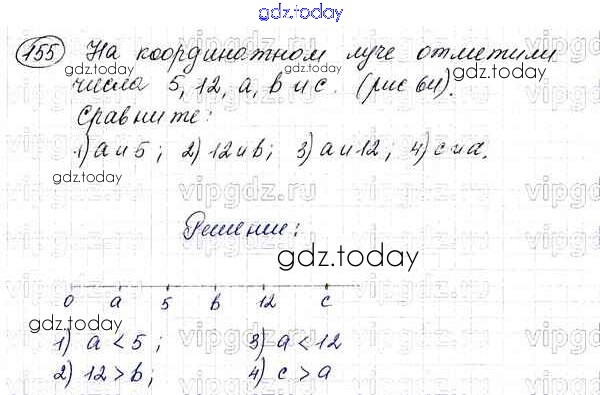 gdz.today
155 На координатном луче отметили
gdz.today gdz.today
числа 5, 12, a, b и c. (рис 64).
Сравните:
1) a и 5; 2) 12 и b; 3) a и 12; 4) c и a.
gdz.today
vipgdz.ru vipgdz.ru
Решение:
gdz.today
0 a 5 b 12 c
gdz.today
1) a < 5; 3) a < 12
2) 12 > b; 4) c > a
gdz.today